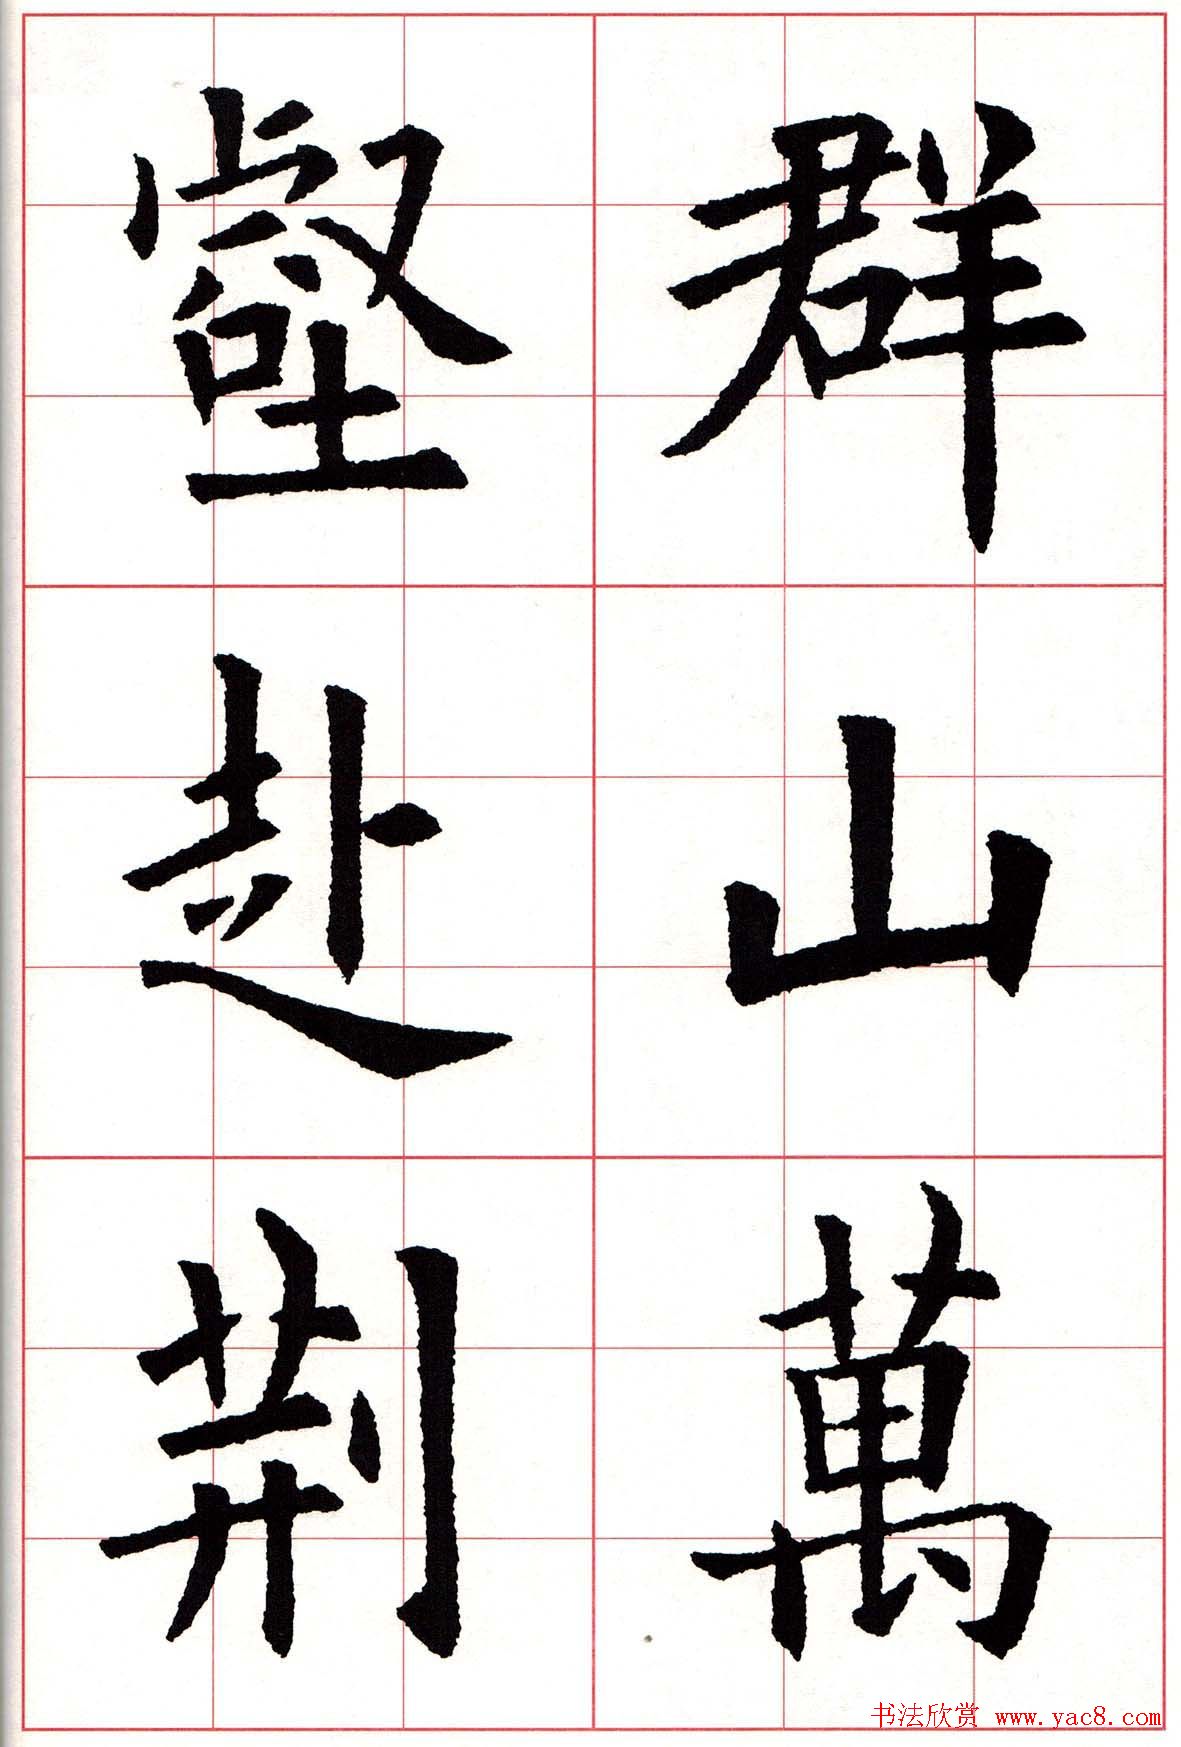 群山萬
壑赴荆
书法欣赏 www.yac8.com